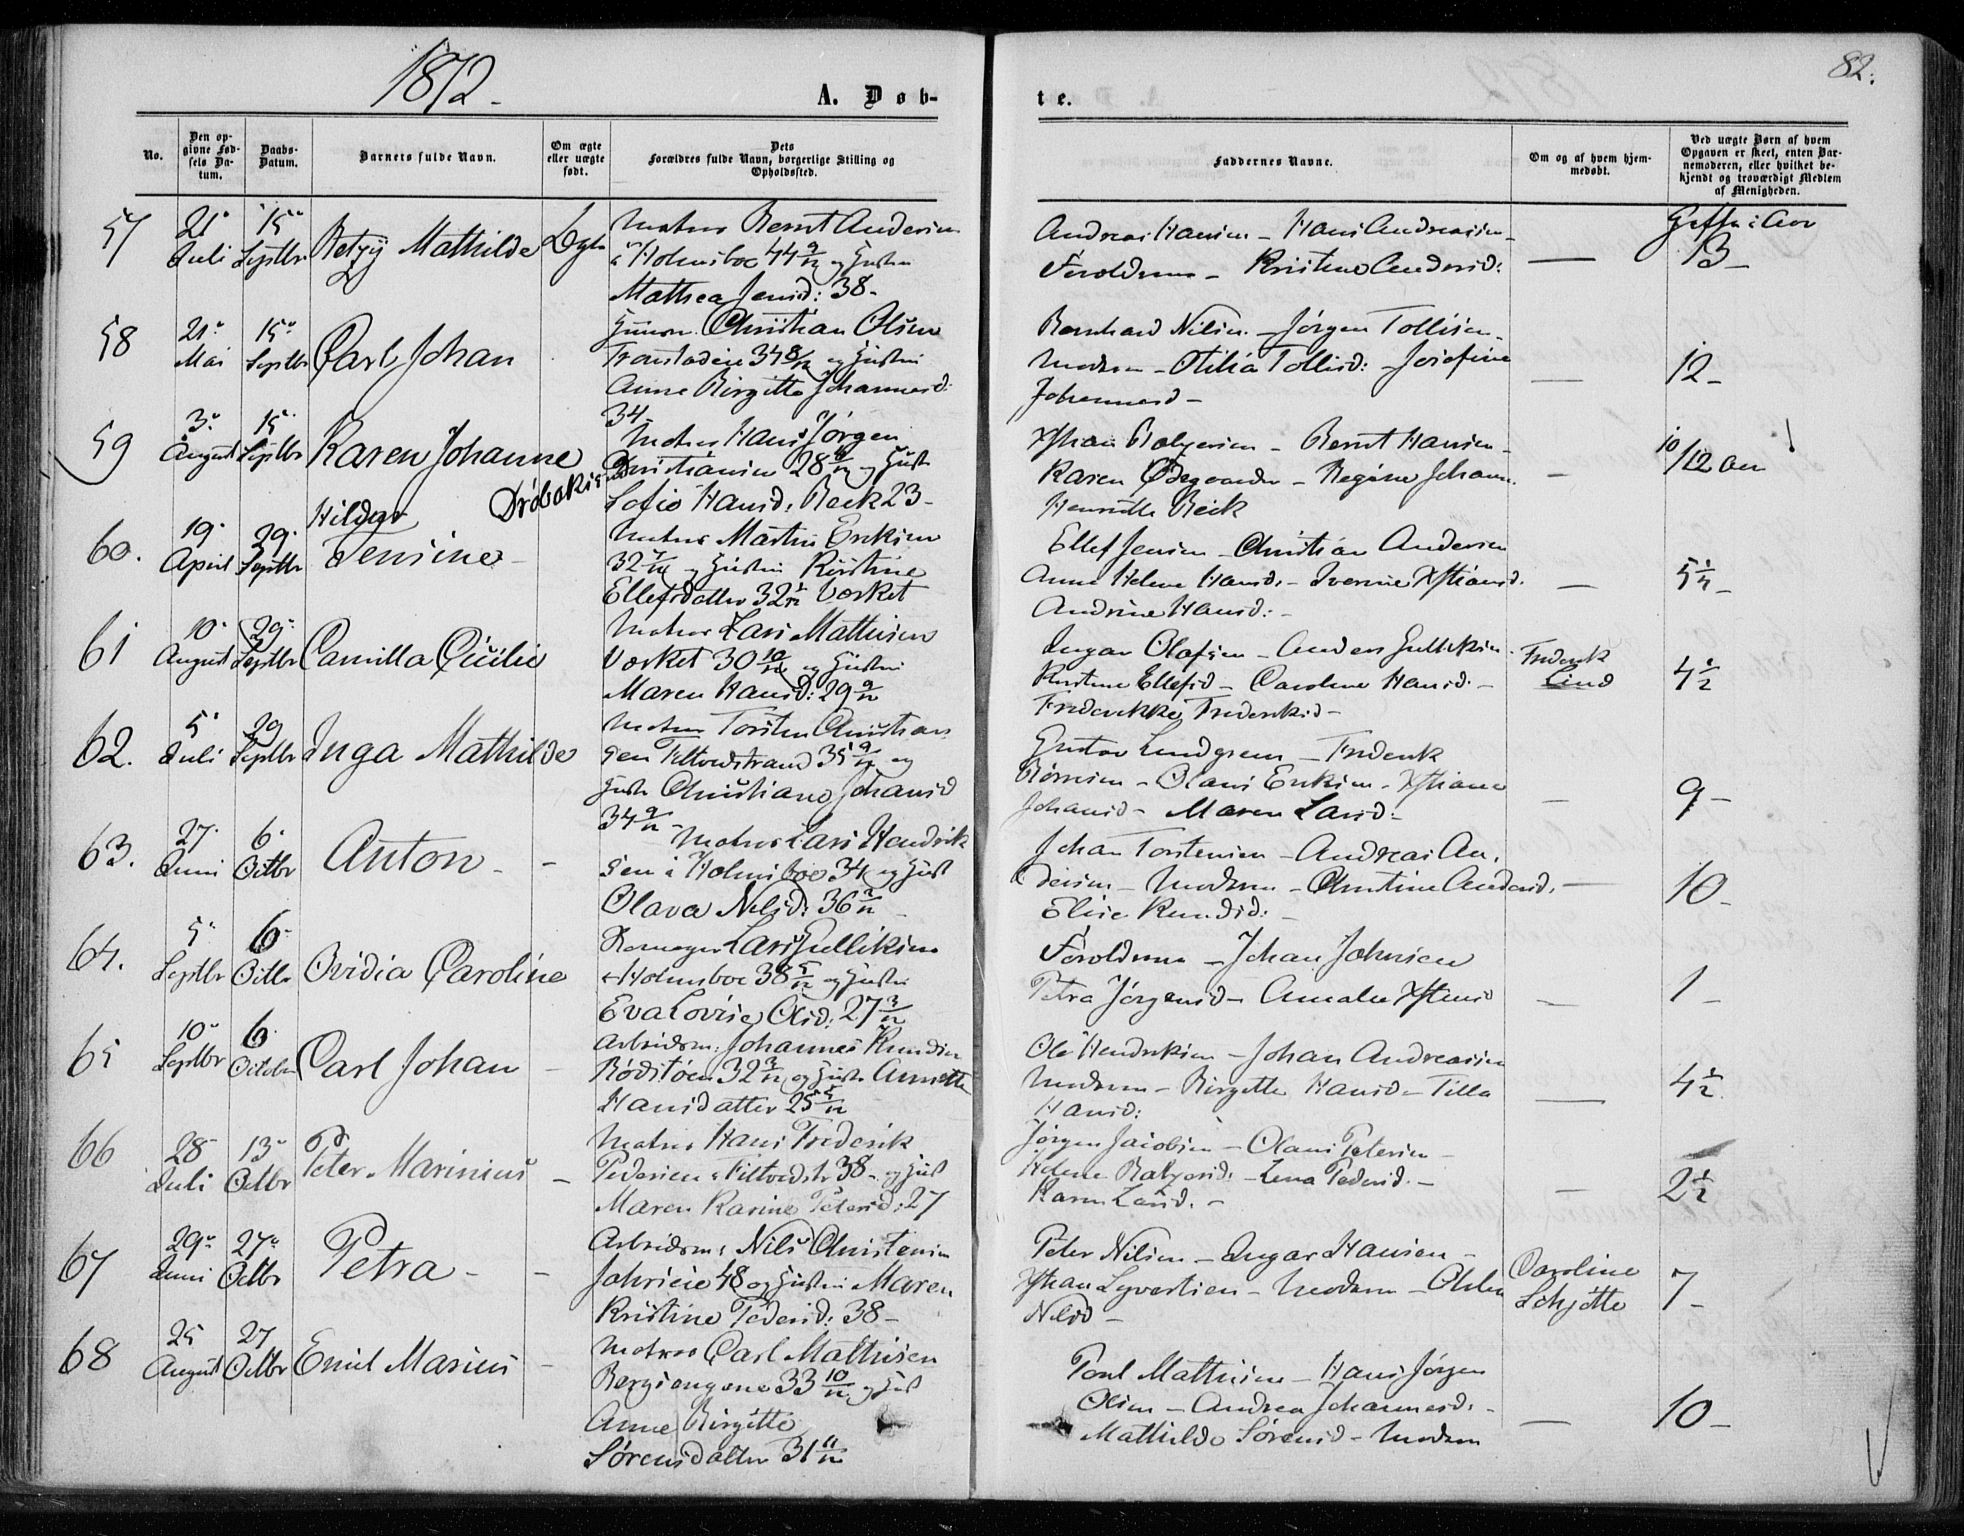 1872.
A. Døb-
te.
82.
No.
Den op-
givne Fød-
sels Da-
tum.
Daabs-
Datum.
Barnets fulde Navn.
Om ægte
eller uægte
født.
Dets
Forældres fulde Navn, borgerlige Stilling og
Opholdssted.
Faddernes Navne.
Om og af hvem hjem-
medøbt.
Ved uægte Børn af hvem
Opgaven er skeet, enten Bar-
nemoderen, eller hvilket be-
kjendt og troværdigt Medlem
af Menigheden.
57
21 Juli
15 Septbr
Betzy Mathilde
Matros Bernt Andersen
i Holmsboe 44 9/12 og Hustru
Mathea Jensd: 38-
Andreas Hansen - Hans Andreasen -
Forældrene - Kristine Andersd:
13-
58
21 Mai
15 Septbr
Carl Johan
Christian Olsen
34 8/12 og Hustru
Anne Birgitte Johannesd:
34-
Bernhard Nilsen - Jørgen Tollesen
Modren - Otilia Tollesd: - Josefine
Johannesd -
12-
59
3 August
15 Septbr
Karen Johanne
Matros Hans Jørgen
Christiansen 28 og Hustr
Sofie Hansd: Beck 23-
Xstian - Bernt Hansen -
Karen Ødegaarden - Regine Johann.
Henriette Beck
10/12 Aar
60.
19 April
29 Septbr
Hilda
Jensine -
Matros Martin Eriksen
32 og Hustru Kristine
Ellefsdatter 32 Værket
Ellef Jensen - Christian Andersen
Anne Helene Hansd: - Iverine Xstiansd.
Andrine Hansd: -
61
10 August
29 Septbr
Camilla Cicilie
Matros Lars Mathisen
Værket 30 10/12 og Hustru
Maren Hansd: 29 9/12
Ingar Olafsen - Anders Gulliksen
Kristine Ellefsd - Caroline Hansd: -
Frederikke Frederiksd -
Frederik
Lind
4 1/2
62.
5 Juli
29 Septbr
Inga Mathilde
Matros Torsten Christian
sen Filtvedstrand 35 9/12 og
Hustr Christiane Johansd
34 9/12
Gustav Lundgreen - Frederik
- Olaus Eriksen - Xstiane
Johansd - Maren Larsd -
9-
63.
27 Juni
6 Octbr
Anton -
Matros Lars Hendrik
sen i Holmsboe 34 og Hust
Olava Nelsd: 36
Johan Torstensen - Andreas An.
dersen - Modren - Christine Andersd.
Elise Knudsd: -
10-
64.
5 Septbr
6 Octbr
Ovidia Caroline
Lars Gulliksen
Holmsboe 38 5/12 og Hustru
Eva Lovise Olsd: 27 3/12
Forældrene - Johan Johnsen
Petra Jørgensd - Amalie Xstensd
1-
65
10 Septbr
6 October
Carl Johan -
Arbeidsm: Johannes Knudsen
Rødstøen 32 3/12 og Hustr Annette
Hansdatter 25 5/12
Ole Hendriksen - Johan Andreasen
Modren - Birgitte Hansd - Tilla
Hansd:
4 1/2
66
28 Juli
13 Octbr
Peter Marinius -
Matros Hans Frederik
Pedersen i Filtvedstr 38 - og Hust
Maren Karine Petersd: 27
Jørgen Jacobsen - Olaus Petersen -
Helene - Lena Pedersd: -
Karen Larsd. -
2 1/2
67
29 Juni
27 Octbr
Petra -
Arbeidsm: Nils Christensen
48 og Hustru Maren
Kristine Pedersd: 38 -
Peter Nilsen - Ingar Hansen -
Xstian Syvertsen - Modren -
Nelsd -
Caroline
Schjøtte
7-
68
25 August
27 Octbr
Emil Marius -
Matros Carl Mathisen
Bergsengene 33 10/12 og Hust
Anne Birgitte
Sørensdatter 31 11/12
Poul Mathisen - Hans Jørgen
Olsen - Andrea Johannesd: -
Mathilde Sørensd - Modren
10-